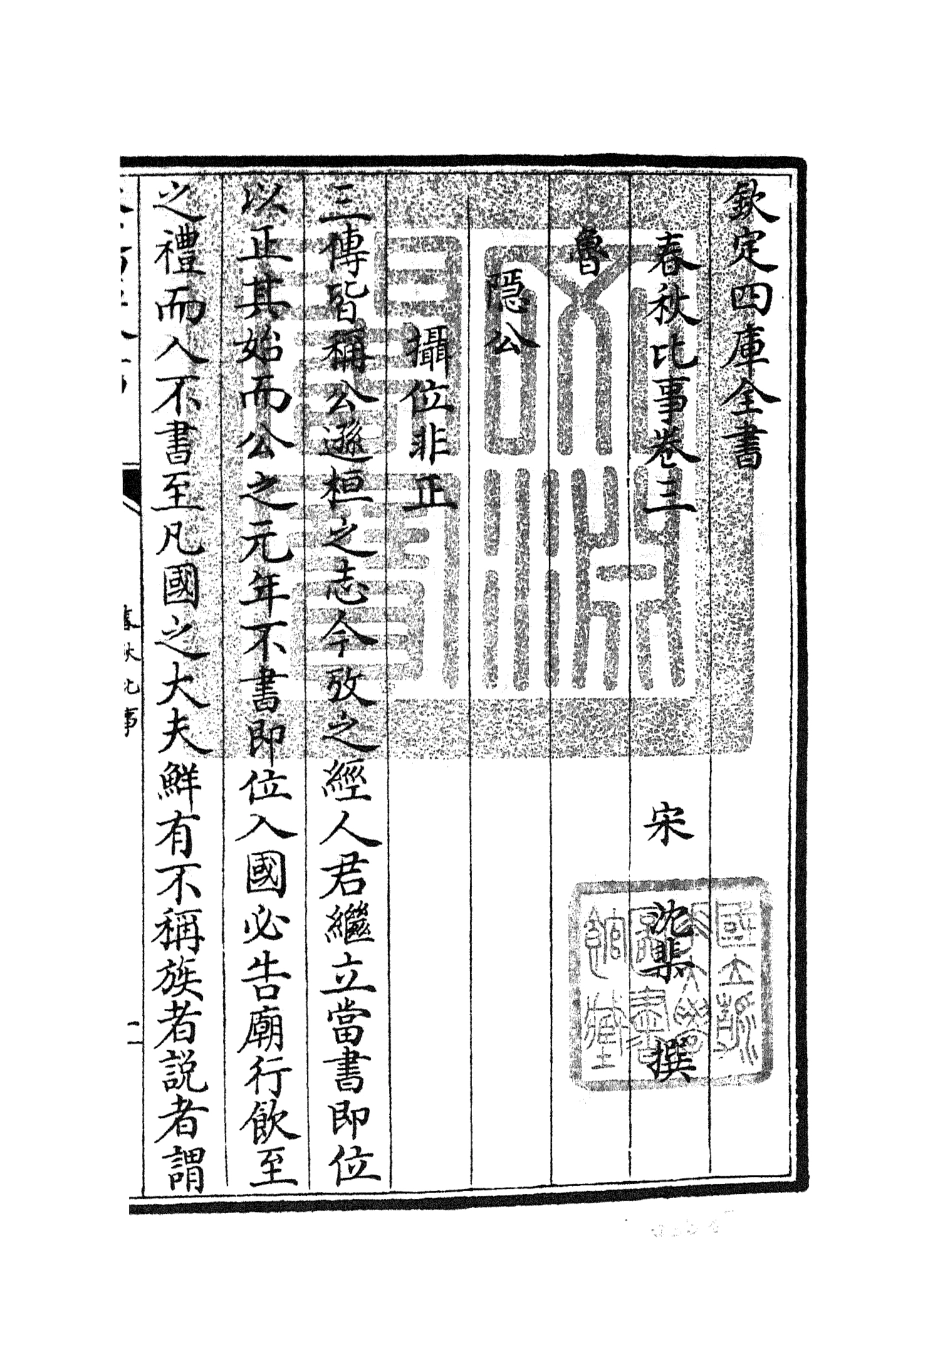 欽定四庫全書
春秋比事卷三
宋 沈棐 撰
魯
隱公
攝位非正
三傳皆稱公遜桓之志今攷之經人君繼立當書即位
以正其始而公之元年不書即位入國必告廟行飲至
之禮而入不書至凡國之大夫鮮有不稱族者説者謂
春秋比事